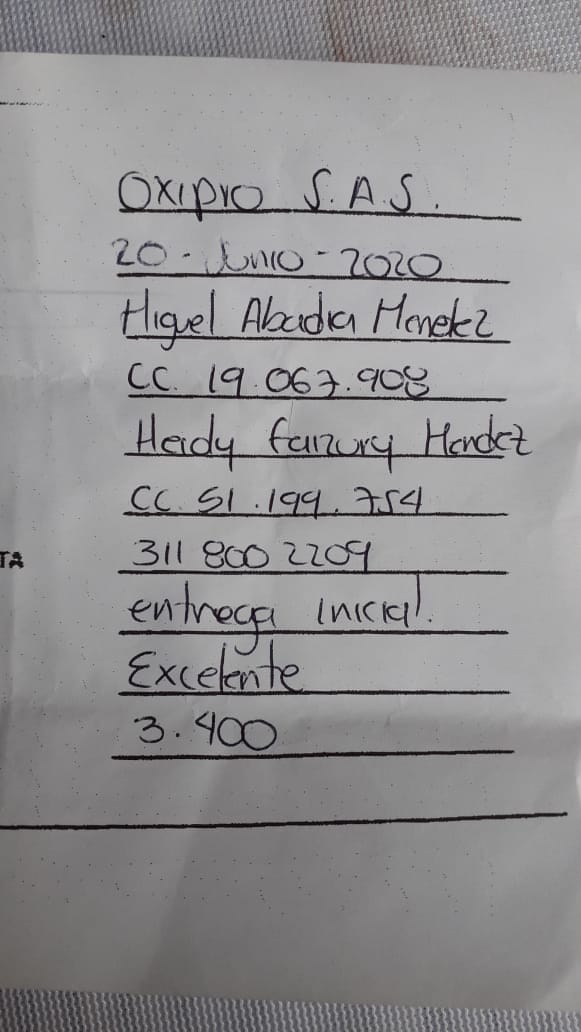 Oxipro S.A.S.
20 - Junio - 2020
Miguel Abadia Mendez
CC. 19.067.908
Heidy Fanzury Mendez
CC. 51.199.754
TA
311 800 2209
entrega inicial.
Excelente
3.400